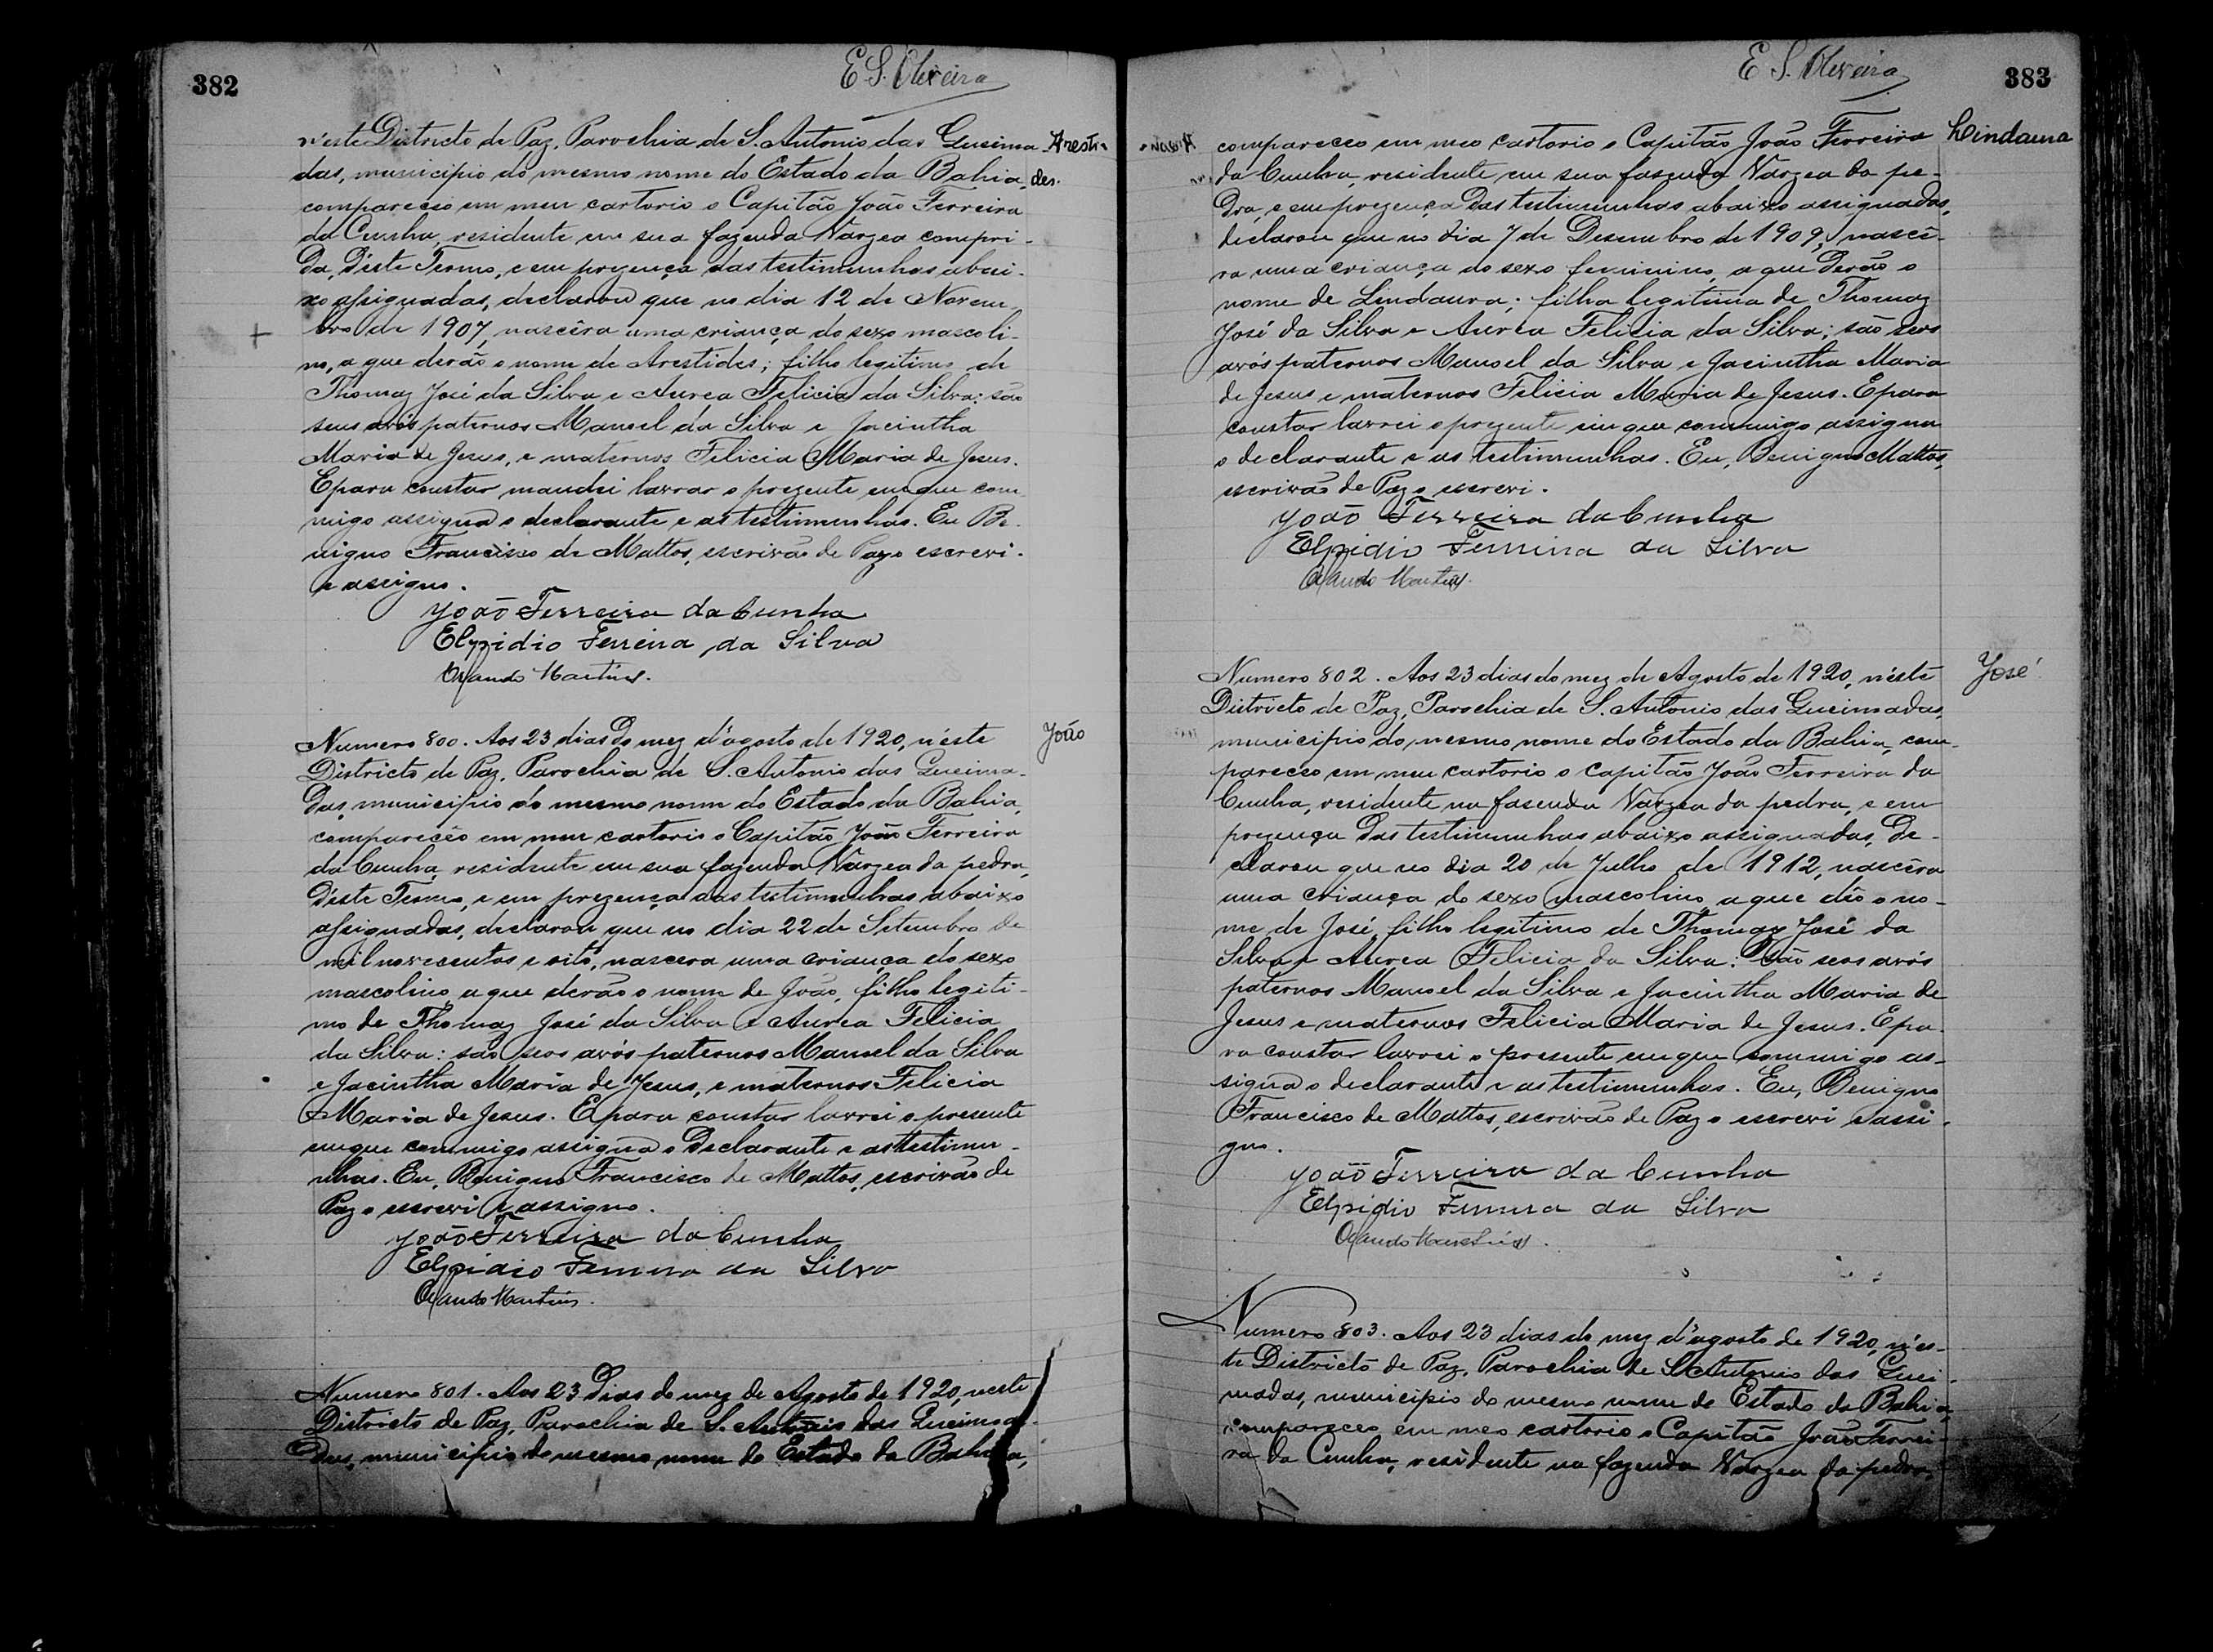 382
E S. Oliveira
n'este Districto de Paz, Parochia de S. Antonio das Queima-
Aresti-
das, municipio do mesmo nome do Estado da Bahia,
des.
compareceo em meu cartorio o Capitão João Ferreira
da Cunha, residente em sua fazenda Várzea compri-
da, d'este Termo, e em prezença das testimunhas abai-
xo assignadas, declarou que no dia 12 de Novem-
bro de 1907, nascêra uma criança do sexo mascoli-
no, a que derão o nome de Arestides; filho legitimo de
Thomaz José da Silva e Aurea Felicia da Silva: são
seus avós paternos Manoel da Silva e Jacintha
Maria de Jesus, e maternos Felicia Maria de Jesus.
E para constar mandei lavrar o prezente em que com-
migo assigna o declarante e as testimunhas. Eu Be-
nigno Francisco de Mattos, escrivão de Paz o escrevi.
e assigno.
João Ferreira da Cunha
Elpidio Ferreira da Silva
Orlando Martins.
João
Numero 800. Aos 23 dias do mez d'agosto de 1920, n'este
Districto de Paz, Parochia de S. Antonio das Queima-
das, municipio do mesmo nome do Estado da Bahia,
compareceo em meu cartorio o Capitão João Ferreira
da Cunha, residente em sua fazenda Várzea da pedra,
d'este Termo, e em prezença das testimunhas abaixo
assignadas, declarou que no dia 22 de Setembro de
mil novecentos e oito, nascera uma criança do sexo
mascolino, a que derão o nome de João, filho legiti-
mo de Thomaz José da Silva e Aurea Felicia
da Silva: são seos avós paternos Manoel da Silva
e Jacintha Maria de Jesus, e maternos Felicia
Maria de Jesus. E para constar lavrei o presente
em que commigo assigna o Declarante e as testimu-
nhas. Eu, Benigno Francisco de Mattos, escrivão de
Paz o escrevi e assigno.
João Ferreira da Cunha
Elpidio Ferreira da Silva
Orlando Martins.
Numero 801. Aos 23 Dias do mez de Agosto de 1920, neste
Districto de Paz, Parochia de S. Antonio das Queima-
das, municipio do mesmo nome do Estado da Bahia,
E S. Oliveira
383
Lindaura
compareceo em meo cartorio o Capitão João Ferreira
da Cunha, residente em sua fazenda Várzea da pe-
dra, e em prezença das testimunhas abaixo assignadas,
declarou que no dia 7 de Desembro de 1909, nascê-
ra uma criança do sexo feminino, a que derão o
nome de Lindaura; filha legitima de Thomaz
José da Silva e Aurea Felicia da Silva; são seos
avós paternos Manoel da Silva e Jacintha Maria
de Jesus e maternos Felicia Maria de Jesus. E para
constar lavrei o prezente em que commigo assigna
o declarante e as testimunhas. Eu, Benigno Mattos,
escrivão de Paz o escrevi.
João Ferreira da Cunha
Elpidio Ferreira da Silva
Orlando Martins.
José
Numero 802. Aos 23 dias do mez de Agosto de 1920, n'este
Districto de Paz, Parochia de S. Antonio das Queimadas,
municipio do mesmo nome do Estado da Bahia, com-
pareceo em meu cartorio o Capitão João Ferreira da
Cunha, residente na fasenda Várzea da pedra, e em
prezença das testimunhas abaixo assignadas, de-
clarou que no dia 20 de Julho de 1912, nascêra
uma criança do sexo mascolino, a que dão o no-
me de José, filho legitimo de Thomaz José da
Silva e Aurea Felicia da Silva: são seos avós
paternos Manoel da Silva e Jacintha Maria de
Jesus e maternos Felicia Maria de Jesus. E pa-
ra constar lavrei o presente em que commigo as-
signa o declarante e as testimunhas. Eu, Benigno
Francisco de Mattos, escrivão de Paz o escrevi e assi-
gno.
João Ferreira da Cunha
Elpidio Ferreira da Silva
Orlando Martins.
Numero 803. Aos 23 dias do mez d'agosto de 1920, n'es-
te Districto de Paz, Parochia de S. Antonio das Quei-
madas, municipio do mesmo nome do Estado da Bahia,
compareceo em meo cartorio o Capitão João Ferrei-
ra da Cunha, residente na fazenda Várzea da pedra,